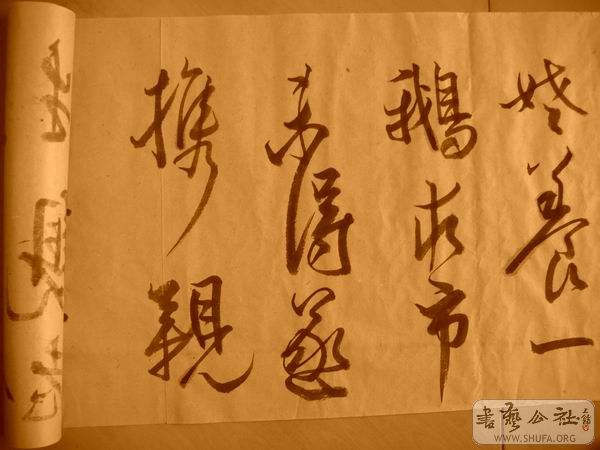 姥養一
鵝求市
未得遂
携親
書藝公社
WWW.SHUFA.ORG